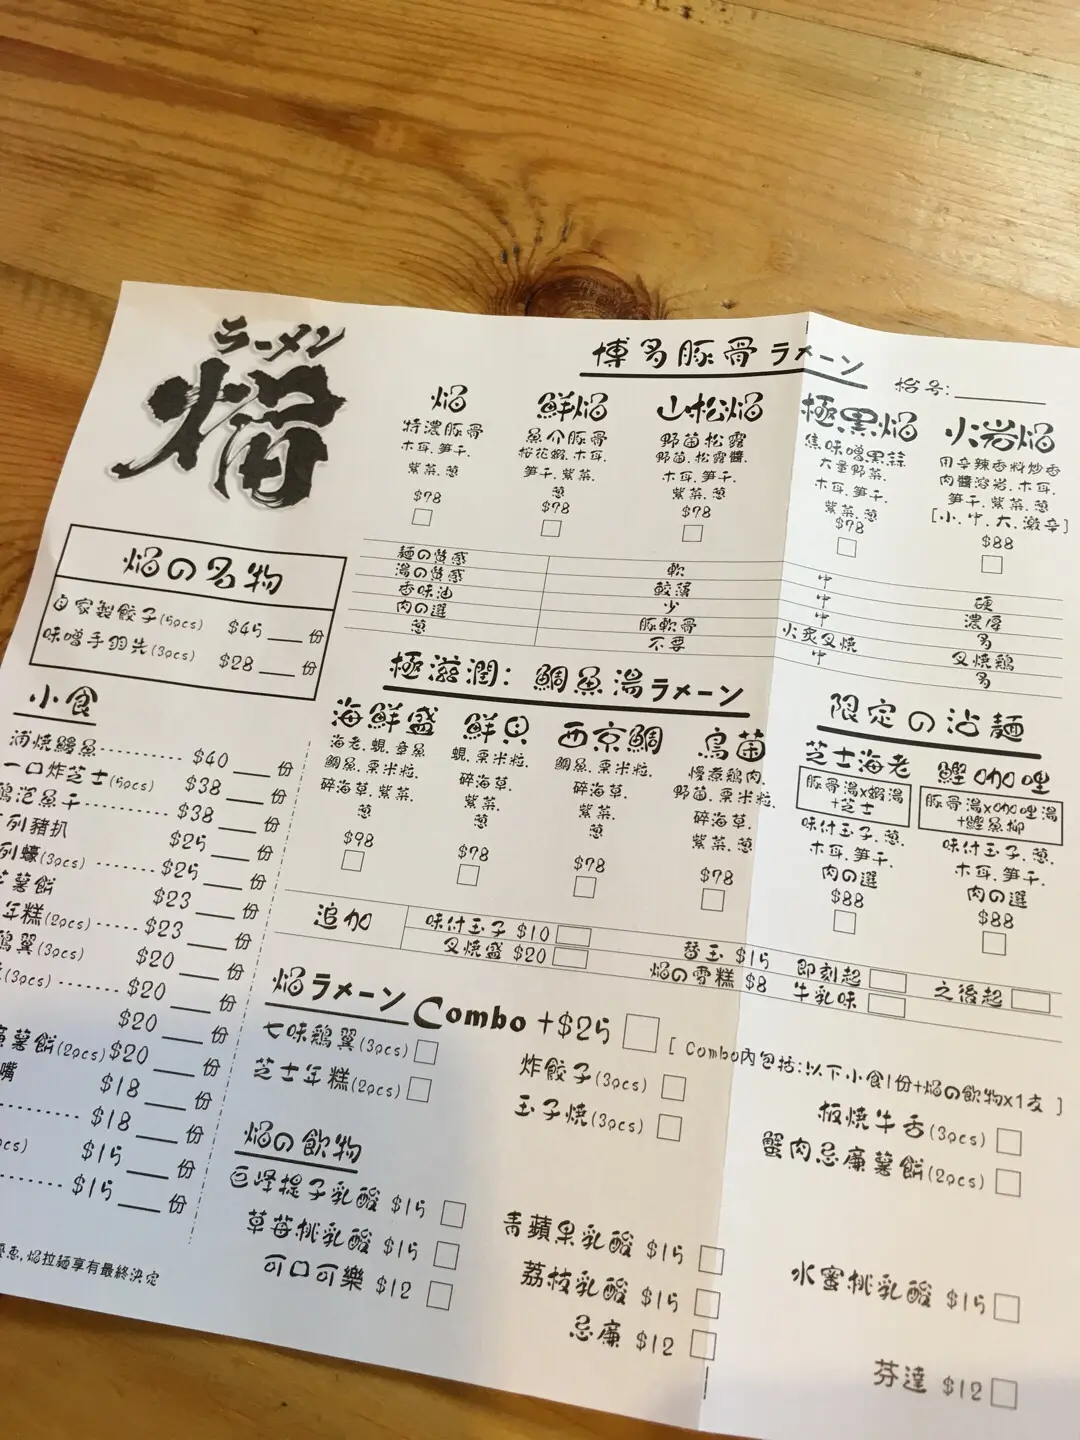 ラーメン
焔
博多豚骨ラメーン
枱号:
焔
特濃豚骨
木耳.笋干.
紫菜.葱
$78
鮮焔
魚介豚骨
桜花蝦.木耳.
笋干.紫菜.
葱
$78
山松焔
野菌松露
野菌.松露醬.
木耳.笋干.
紫菜.葱
$78
極黒焔
焦味噌黒蒜
大量野菜.
木耳.笋干.
紫菜.葱
$78
火岩焔
用辛辣香料炒香
肉醬溶岩.木耳.
笋干.紫菜.葱
[小.中.大.激辛]
$88
麺の質感 軟 中 硬
湯の質感 較薄 中 濃厚
香味油 少 中 多
肉の選 豚軟骨 火炙叉焼 叉焼鶏
葱 不要 中 多
焔の名物
自家製餃子(5pcs) $45 份
味噌手羽先(3pcs) $28 份
極滋潤：鯛魚湯ラメーン
海鮮盛
海老.蜆.章魚
鯛魚.栗米粒.
碎海草.紫菜.
葱
$98
鮮貝
蜆.栗米粒.
碎海草.
紫菜.
葱
$78
西京鯛
鯛魚.栗米粒.
碎海草.
紫菜.
葱
$78
鳥菌
慢煮鶏肉.
野菌.栗米粒.
碎海草.
紫菜.葱
$78
限定の沾麺
芝士海老
豚骨湯x蝦湯
+芝士
味付玉子.葱.
木耳.笋干.
肉の選
$88
鰹咖喱
豚骨湯x咖喱湯
+鰹魚粉
味付玉子.葱.
木耳.笋干.
肉の選
$88
小食
蒲焼鰻魚 $40 份
一口炸芝士(5pcs) $38 份
鶏泡魚干 $38 份
列豬扒 $25 份
列蠔(3pcs) $25 份
薯餅 $23 份
年糕(2pcs) $23 份
鶏翼(3pcs) $20 份
(3pcs) $20 份
$20 份
廉薯餅(2pcs) $20 份
嘴 $18 份
$18 份
pcs) $15 份
$15 份
追加
味付玉子 $10
替玉 $15 即刻起 之後起
叉焼盛 $20
焔の雪糕 $8 牛乳味
焔ラメーンCombo +$25
[ Combo内包括:以下小食1份+焔の飲物x1支 ]
七味鶏翼(3pcs)
炸餃子(3pcs)
板焼牛舌(3pcs)
芝士年糕(2pcs)
玉子焼(3pcs)
蟹肉忌廉薯餅(2pcs)
焔の飲物
巨峰提子乳酸 $15
青蘋果乳酸 $15
水蜜桃乳酸 $15
草莓桃乳酸 $15
荔枝乳酸 $15
可口可樂 $12
忌廉 $12
芬達 $12
惠,焔拉麵享有最終決定